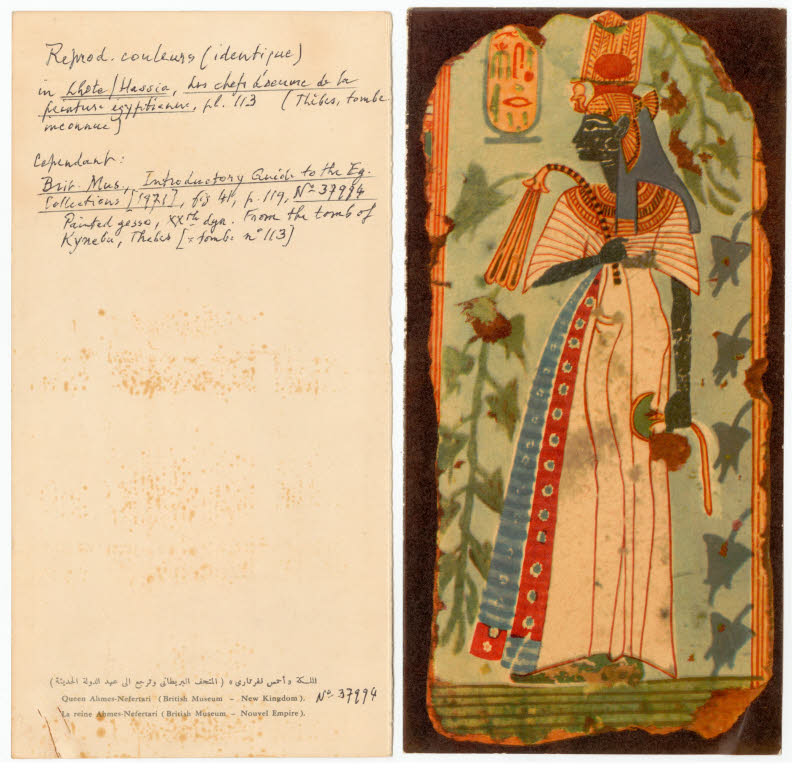 Reprod. couleurs (identique)
in Lhote/Hassia, Les chefs d'oeuvre de la
peinture egyptienne, pl. 113 (Thèbes, tombe
inconnue)
Cependant:
Brit. Mus., Introductory Guide to the Eg.
Collections [1971], fig 41, p. 119, No 37994
Painted gesso, XXth dyn. From the tomb of
Kynebu, Thebes [= tombe no 113]
الملكة « أحمس نفرتارى » ( المتحف البريطانى وترجع الى عهد الدولة الحديثة )
Queen Ahmes-Nefertari ( British Museum – New Kingdom ). No 37994
La reine Ahmes-Nefertari ( British Museum, – Nouvel Empire ).